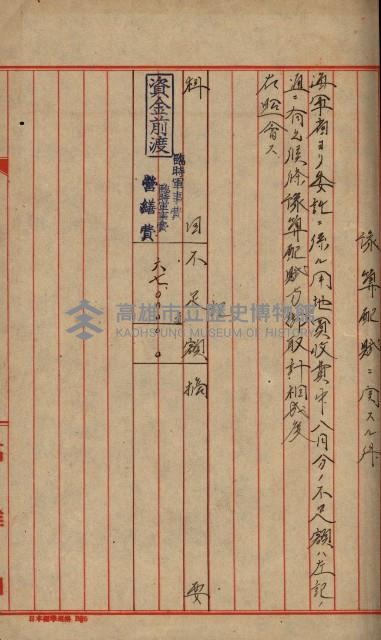 豫算配賦ニ関スル件
海軍省ヨリ委託ニ係ル用地買收費中八月分ノ不足額ハ左記ノ
通ニ有之候條豫算配賦方御取計相成度
右照會ス
科目 不足額 摘要
資金前渡
臨時軍事費
臨時軍事費
營繕費
六七〇〇〇〇〇
高雄市立歷史博物館
KAOHSIUNG MUSEUM OF HISTORY